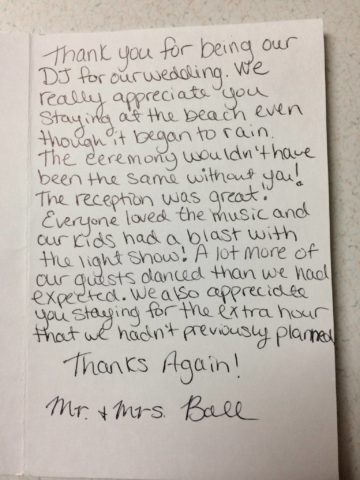 Thank you for being our
DJ for our wedding. We
really appreciate you
staying at the beach even
though it began to rain.
The ceremony wouldn't have
been the same without you!
The reception was great!
Everyone loved the music and
our kids had a blast with
the light show! A lot more of
our guests danced than we had
expected. We also appreciate
you staying for the extra hour
that we hadn't previously planned.
Thanks Again!
Mr. & Mrs. Ball